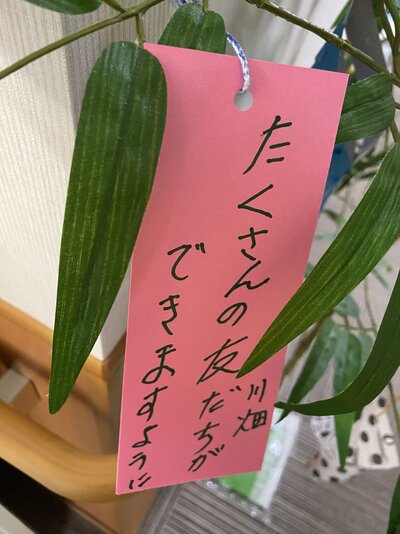 たくさんの友だちが
できますように
川畑